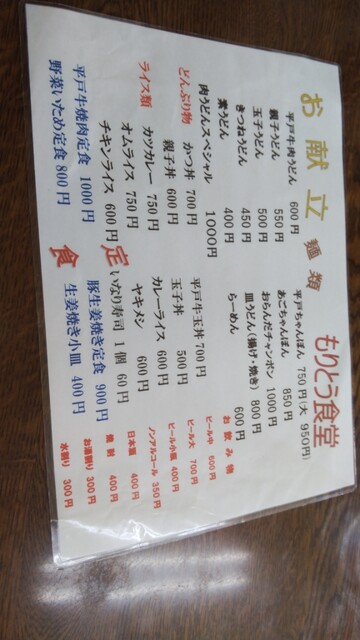 お献立
もりとう食堂
麺類
平戸牛肉うどん 600円
親子うどん 550円
玉子うどん 500円
きつねうどん 450円
素うどん 400円
肉うどんスペシャル 1000円
平戸ちゃんぽん 750円(大 950円)
あごちゃんぽん 850円
おらんだチャンポン 1000円
皿うどん(揚げ・焼き) 800円
らーめん 600円
どんぶり物
かつ丼 700円
親子丼 600円
平戸牛玉丼 700円
玉子丼 500円
ライス類
カツカレー 750円
オムライス 750円
チキンライス 600円
カレーライス 600円
ヤキメシ 600円
いなり寿司 1個 60円
定食
平戸牛焼肉定食 1000円
野菜いため定食 800円
豚生姜焼き定食 900円
生姜焼き小皿 400円
お飲み物
ビール中 600円
ビール大 700円
ビール小瓶 400円
ノンアルコール 350円
日本酒 400円
燗割 400円
お湯割り 300円
水割り 300円